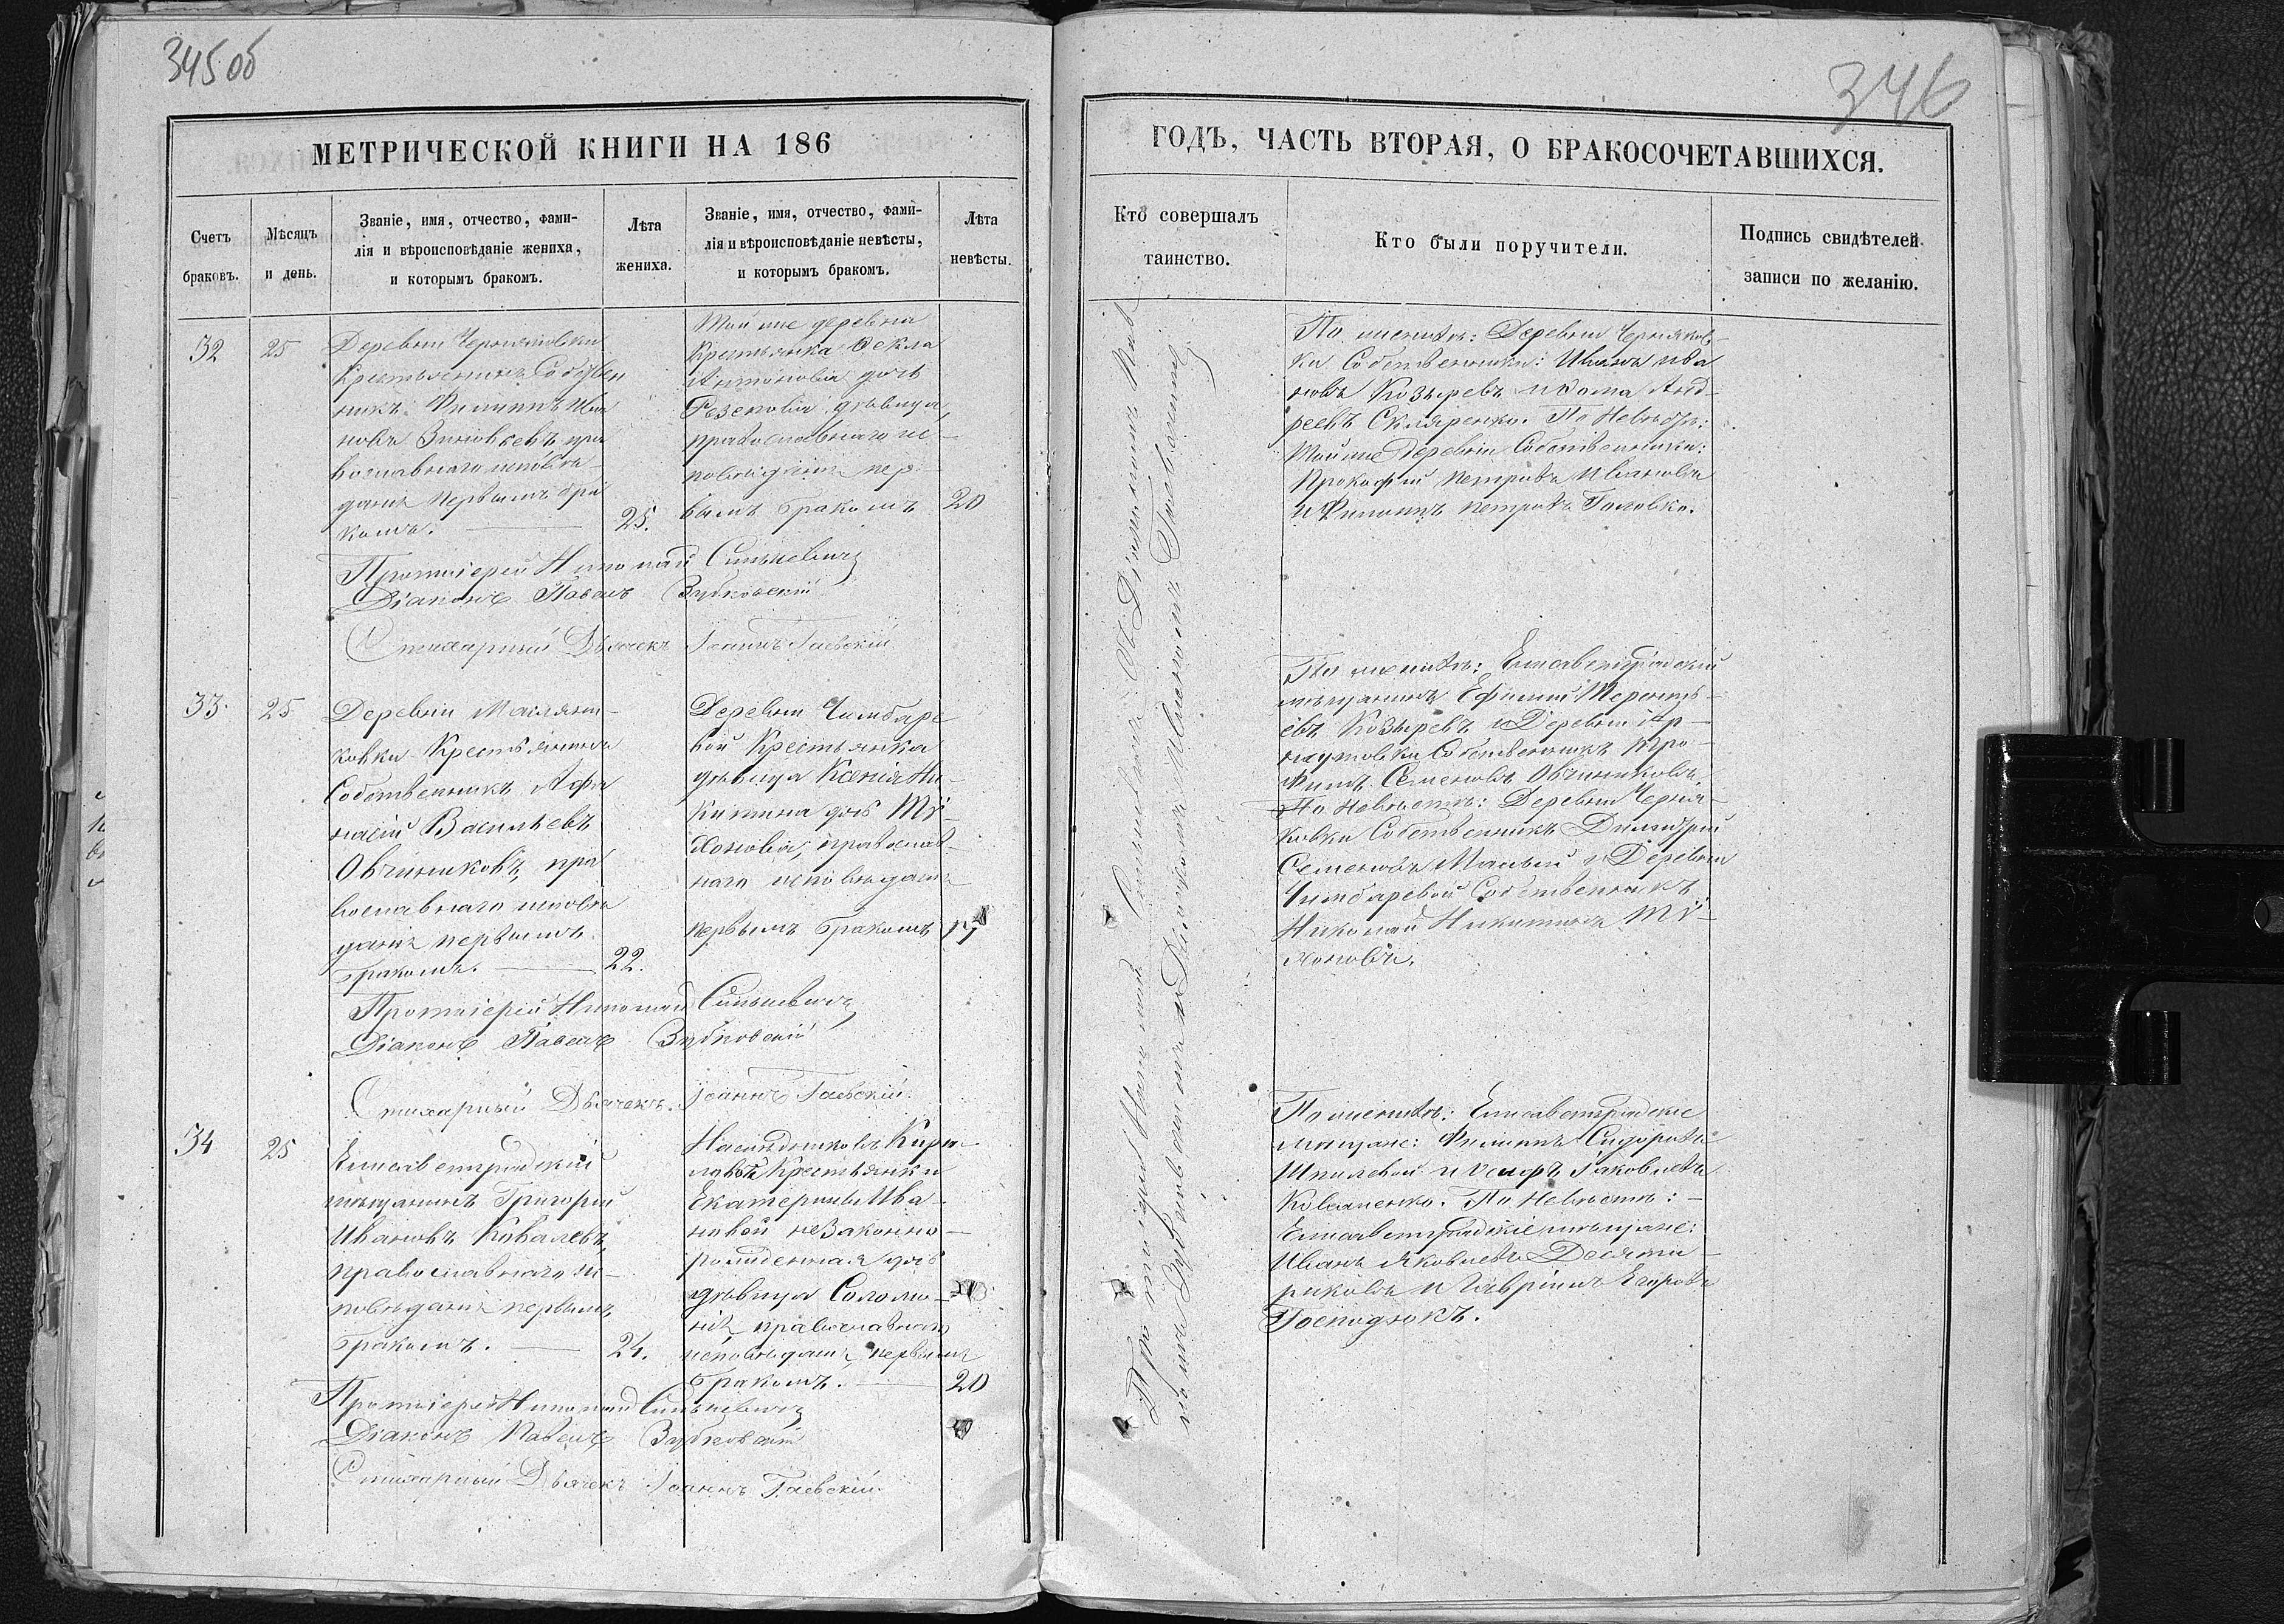 345 об
346
МЕТРИЧЕСКОЙ КНИГИ НА 186
ГОДЪ, ЧАСТЬ ВТОРАЯ, О БРАКОСОЧЕТАВШИХСЯ.
Счетъ
браковъ.
Мѣсяцъ
и день.
Званіе, имя, отчество, фами-
лія и вѣроисповѣданіе жениха,
и которымъ бракомъ.
Лѣта
жениха.
Званіе, имя, отчество, фами-
лія и вѣроисповѣданіе невѣсты,
и которымъ бракомъ.
Лѣта
невѣсты.
Кто совершалъ
таинство.
Кто были поручители.
Подпись свидѣтелей
записи по желанію.
32
25
Деревни Черняковки
Крестьянинъ Собствен
никъ Филиппъ Ива
новъ Зиновьевъ пра
вославнаго исповѣ
данія первымъ бра
комъ.
25.
Той же деревни
Крестьянка Ѳекла
Антонова дочь
дѣвица,
православнаго ис-
повѣданія пер-
вымъ бракомъ
20
Протоіерей Николай Синькевичъ
Діаконъ Павелъ Зубковскій
Стихарный Дьячекъ Іоаннъ Гаевскій
По женихѣ: Деревни Черняков-
ки Собственники: Иванъ Ива
новъ Козыревъ и Ѳома Анд-
реевъ Скляренко. По Невѣстѣ:
Той же деревни Собственники:
Прокофій Петровъ Ивановъ
и Филиппъ Петровъ Головко.
33.
25
Деревни
ковки Крестьянинъ
Собственникъ Афа
насій Васильевъ
Овчиниковъ, пра
вославнаго исповѣ
данія первымъ
бракомъ.
22.
Деревни Чимбаре
вой Крестьянка
дѣвица Ксенія Ни-
китина дочь Ти-
хонова, православ-
наго исповѣданія
первымъ бракомъ
17
Протоіерей Николай Синькевичъ
Діаконъ Павелъ Зубковскій
Стихарный Дьячекъ Іоаннъ Гаевскій.
По женихѣ: Елисаветградскій
мѣщанинъ Ефимій Теренть-
евъ Козыревъ и Деревни
Собственникъ Тро-
фимъ Семеновъ Овчиниковъ
По Невѣстѣ: Деревни Черня-
ковки Собственникъ Димитрій
Семеновъ Малый и Деревни
Чимбаревой Собственникъ
Николай Никитинъ Ти-
хоновъ.
34
25
Елисаветградскій
мѣщанинъ Григорій
Ивановъ Ковалевъ,
православнаго ис-
повѣданія первымъ
бракомъ.
24.
Наслѣдниковъ
Крестьянки
Екатерины Ива-
новой незаконно-
рожденная дочь
дѣвица Соломо-
нія православнаго
исповѣданія первымъ
бракомъ.
20
Протоіерей Николай Синькевичъ
Діаконъ Павелъ Зубковскій
Стихарный Дьячекъ Іоаннъ Гаевскій.
По женихѣ: Елисаветградскіе
мѣщане: Филиппъ Сидоровъ
Шпилевой и Іаковлевъ
Коваленко. По Невѣстѣ:
Елисаветградскіе мѣщане:
Иванъ Яковлевъ
и Гавріилъ Егоровъ
Господзюкъ.
Протоіерей Николай Синькевичъ съ Діакономъ Пав
ломъ Зубковскимъ и Дьячкомъ Іоанномъ Гаевскимъ